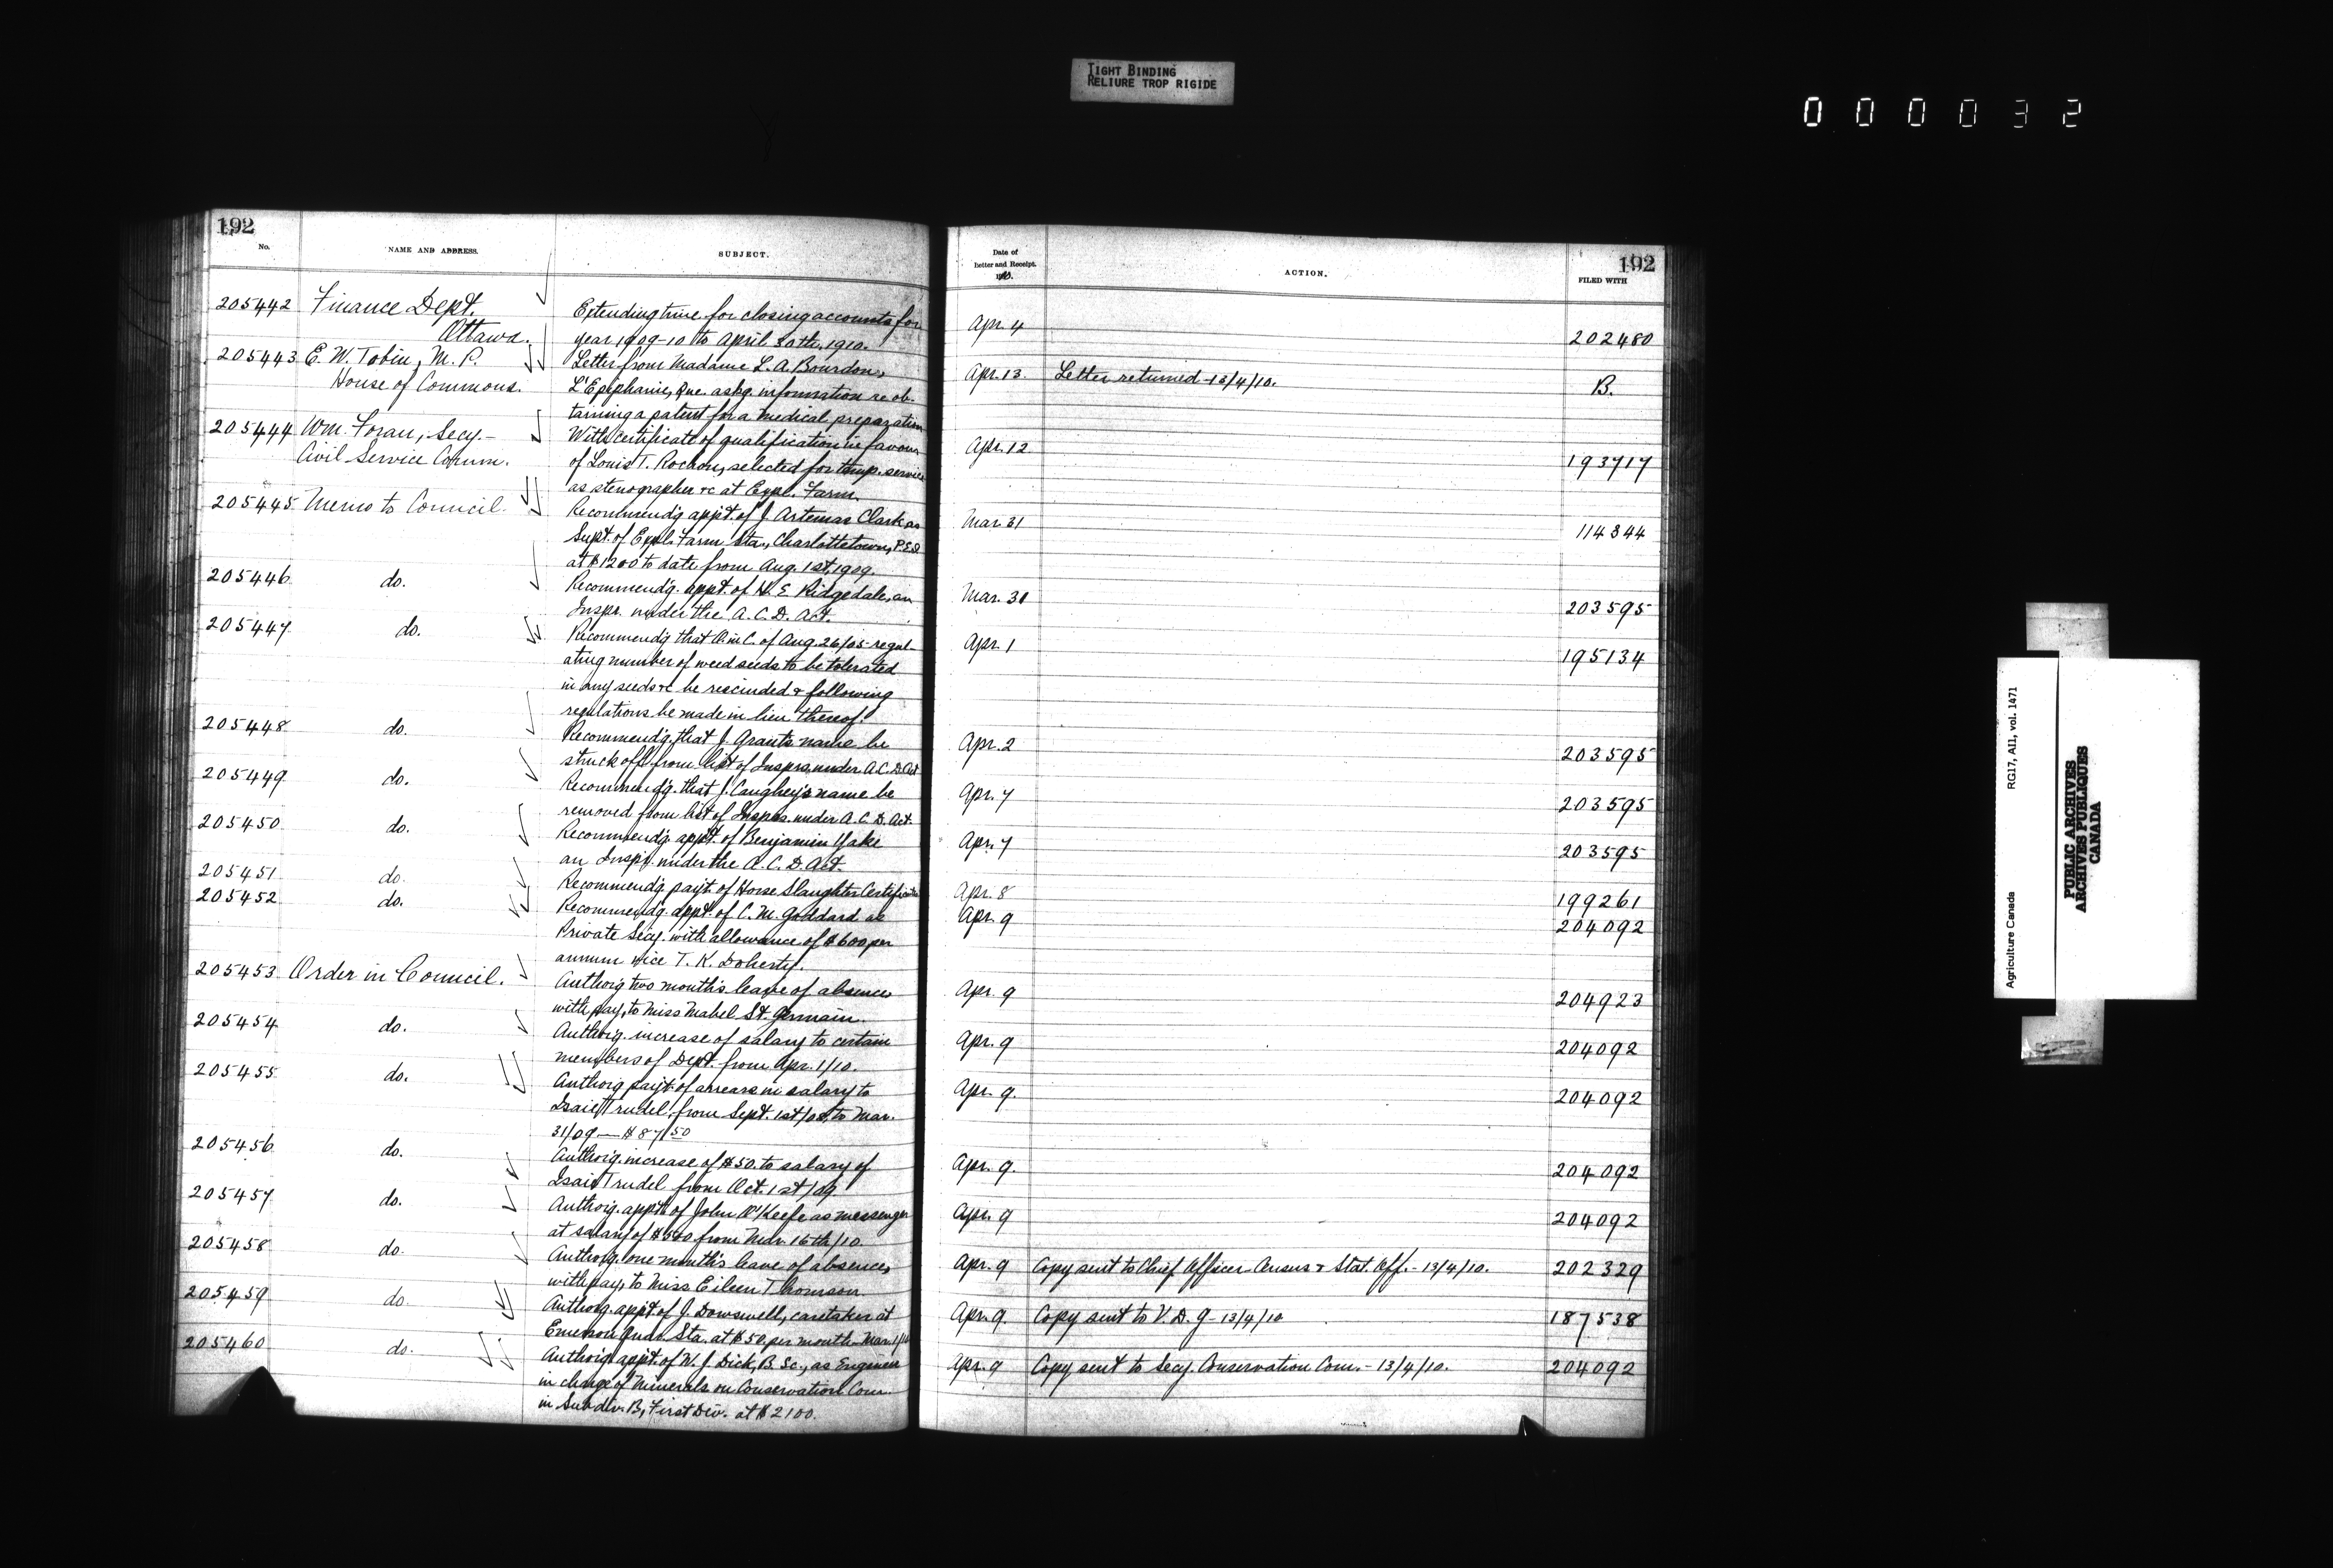 TIGHT BINDING
RELIURE TROP RIGIDE
000032
192
No. NAME AND ADDRESS. SUBJECT.
205442 Finance Dept. Extending time for closing accounts for
Ottawa. year 1909-10 to April 30th, 1910.
205443 E. W. Tobin, M. P. Letter from Madame L. A. Bourdon,
House of Commons. L'Epiphanie, Que. askg. information re ob-
taining a patent for a medical preparation
205444 Wm. Foran, Secy.- With certificate of qualification in favour
Civil Service Comm. of Louis T. Rochon, selected for temp. service
as stenographer &c at Expl. Farm.
205445 Memo to Council. Recommend'g appt. of J. Artemas Clark as
Supt. of Expl. Farm Sta., Charlottetown, P.E.I.
at $1200 to date from Aug. 1st, 1909.
205446 do. Recommend'g. appt. of H. E. Ridgedale, an
Inspr. under the A. C. D. Act.
205447 do. Recommend'g that O. in C. of Aug. 26/05 regul-
ating number of weed seeds to be tolerated
in any seeds &c be rescinded & following
regulations be made in lieu thereof.
205448 do. Recommend'g. that J. Grant's name be
struck off from list of Insprs. under A.C.D. Act
205449 do. Recommend'g. that J. Caughey's name be
removed from list of Insprs. under A. C. D. Act.
205450 do. Recommend'g. appt. of Benjamin Yake
an Inspr. under the A. C. D. Act.
205451 do. Recommend'g. payt. of Horse Slaughter Certificates
205452 do. Recommend'g. appt. of C. M. Goddard as
Private Secy. with allowance of $600 per
annum vice T. K. Doherty.
205453 Order in Council. Authorig two month's leave of absence
with pay, to Miss Mabel St. Germain.
205454 do. Authorig. increase of salary to certain
members of Dept. from Apr. 1/10.
205455 do. Authorig payt. of arrears in salary to
Isaie Trudel, from Sept. 1st/08, to Mar.
31/09 — $87.50
205456 do. Authorig. increase of $50. to salary of
Isaie Trudel from Oct. 1st/09.
205457 do. Authorig. appt. of John O'Keefe as messenger
at salary of $500 from Mar. 16th/10.
205458 do. Authorig. one month's leave of absence,
with pay, to Miss Eileen Thomson
205459 do. Authorig. appt. of J. Dowswell, caretaker at
Emerson Quar. Sta. at $50 per month – Mar. 1/10
205460 do. Authorig appt. of W. J. Dick, B. Sc., as Engineer
in charge of Minerals on Conservation Com.
in Subdiv. B, First Div. at $2100.
192
Date of
Letter and Receipt.
ACTION.
FILED WITH
Apr. 4 202480
Apr. 13 Letter returned – 13/4/10. B.
Apr. 12 193717
Mar. 31 114344
Mar. 31 203595
Apr. 1 195134
Apr. 2 203595
Apr. 7 203595
Apr. 7 203595
Apr. 8 199261
Apr. 9 204092
Apr. 9 204923
Apr. 9 204092
Apr. 9. 204092
Apr. 9. 204092
Apr. 9 204092
Apr. 9 Copy sent to Chief Officer Census & Stat. Off. – 13/4/10. 202329
Apr. 9 Copy sent to V. D. G – 13/4/10 187538
Apr. 9 Copy sent to Secy. Conservation Com. – 13/4/10. 204092
Agriculture Canada RG17, AII, vol. 1471
PUBLIC ARCHIVES
ARCHIVES PUBLIQUES
CANADA